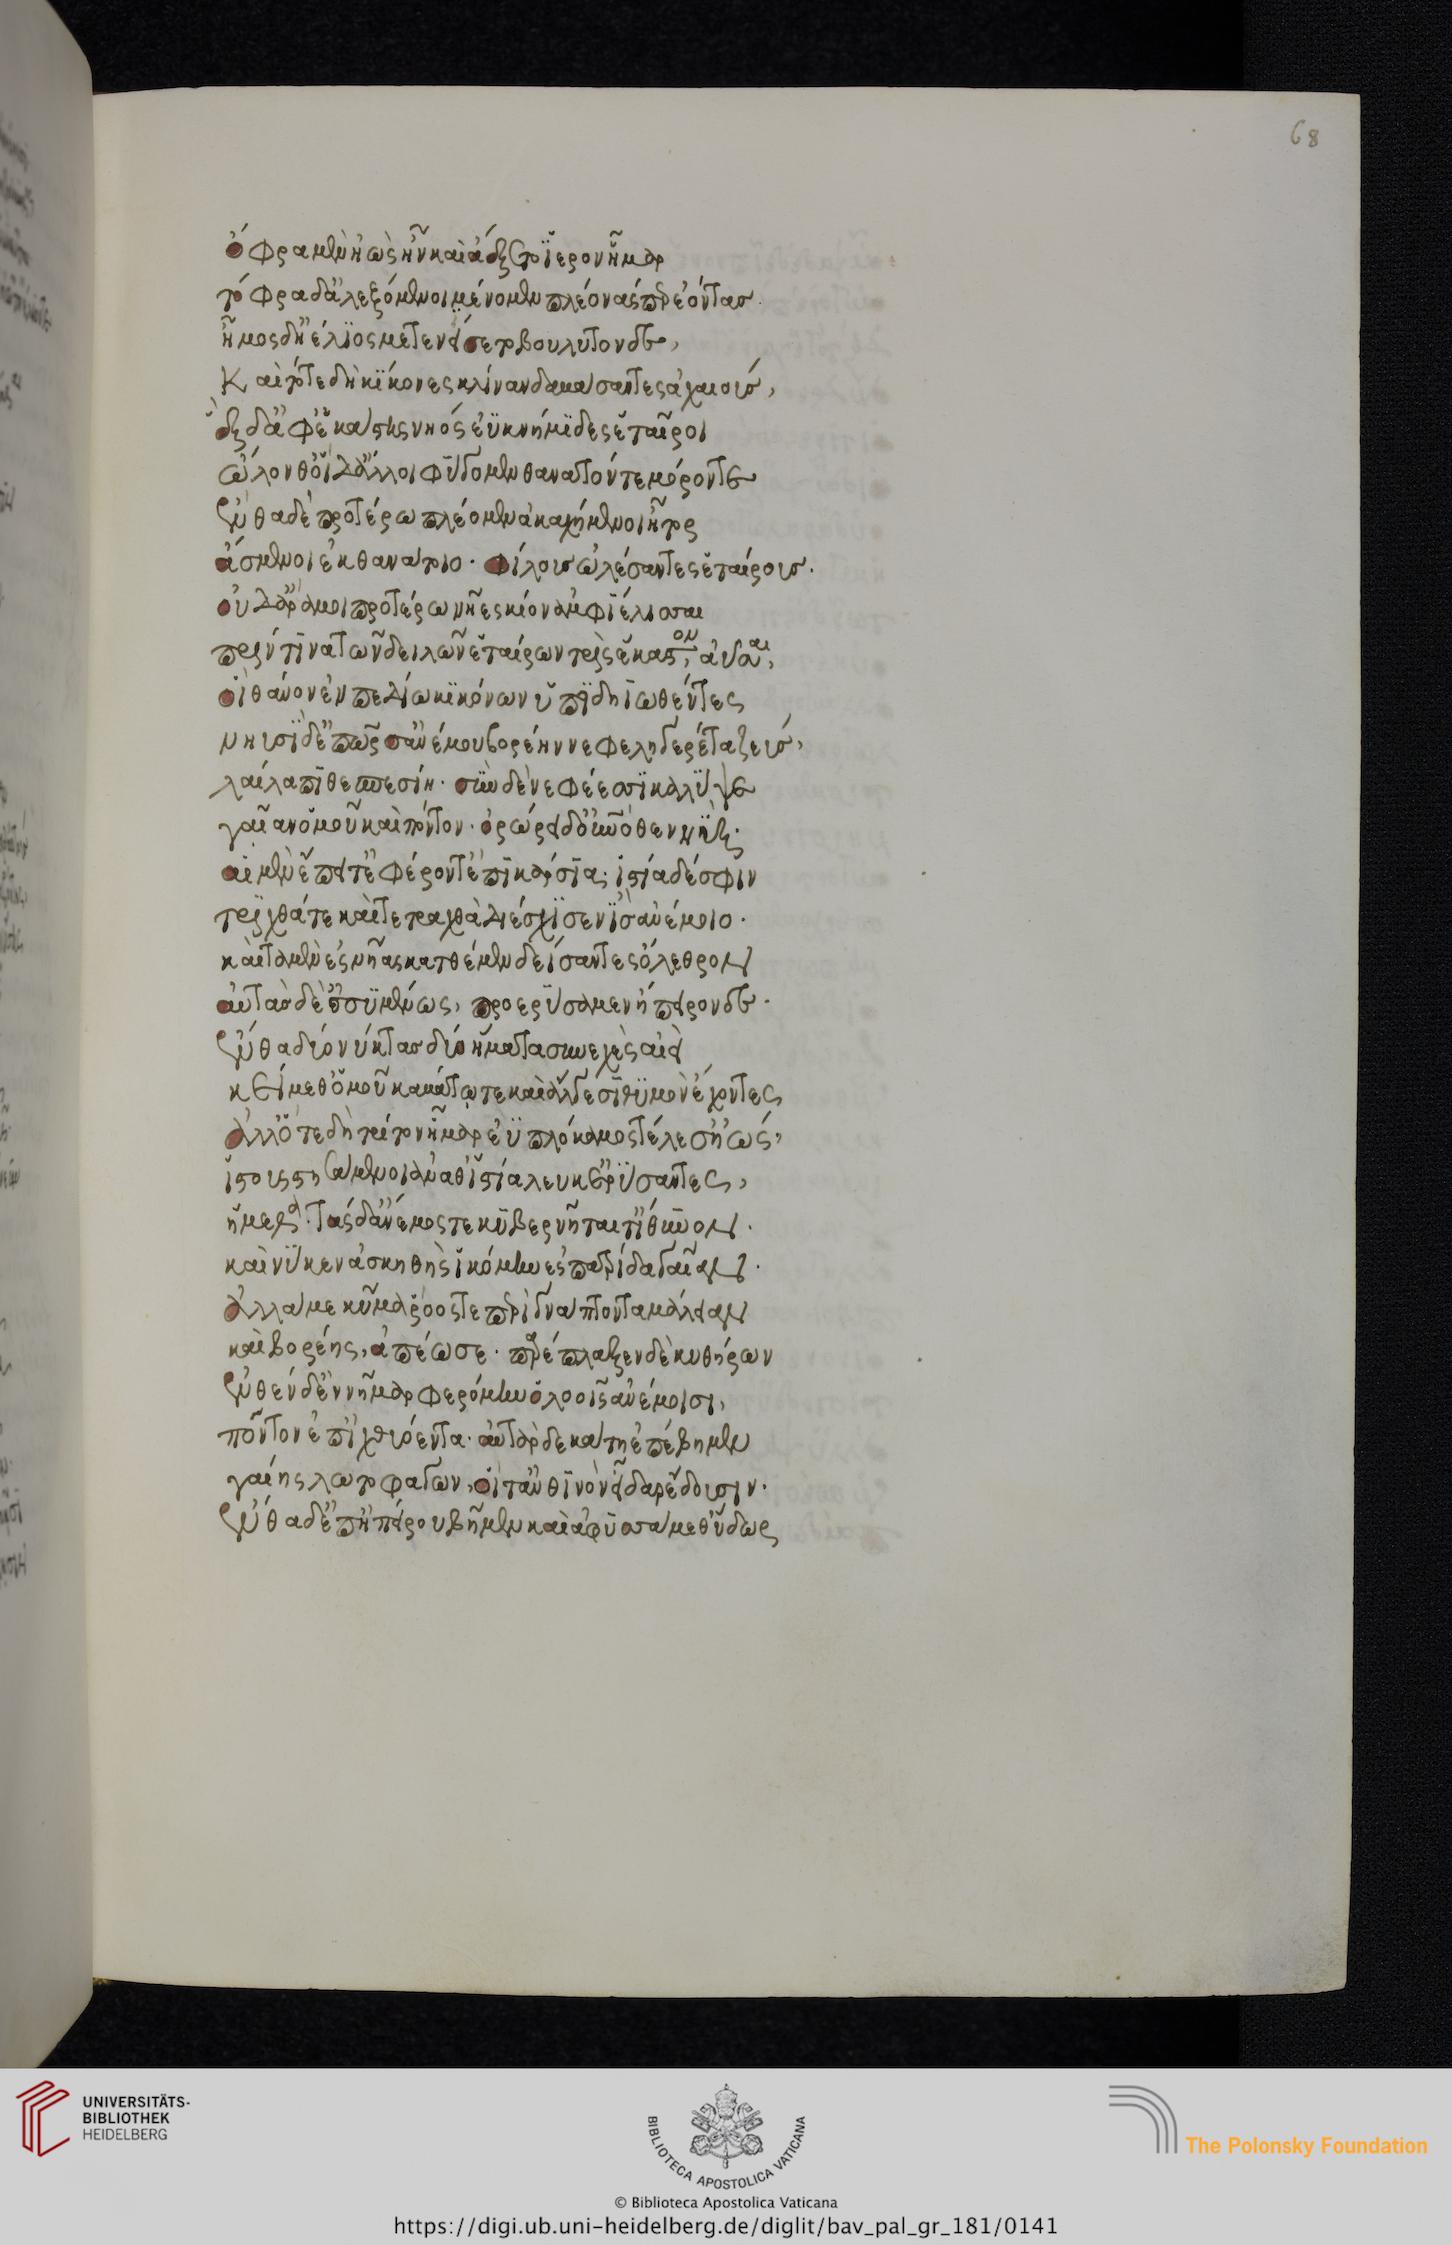 68
ὄφρα μὲν ἠὼς ἦν καὶ ἀέξετο ἱερὸν ἦμαρ
τόφρα δ' ἀλεξόμενοι μένομεν πλέονάς περ ἐόντας.
ἦμος δ' ἠέλιος μετενείσετο βουλυτόνδε,
Καὶ τότε δὴ κίκονες κλῖναν δαμάσαντες ἀχαιούς,
ἓξ δ' ἀφ' ἑκάστης νηὸς ἐϋκνήμιδες ἑταῖροι
ὤλονθ' οἱ δ' ἄλλοι φύγομεν θάνατόν τε μόρον τε
ἔνθα δὲ προτέρω πλέομεν ἀκαχήμενοι ἦτορ
ἄσμενοι ἐκ θανάτοιο. φίλους ὀλέσαντες ἑταίρους.
οὐδ' ἄρα μοι προτέρω νῆες κίον ἀμφιέλισσαι
πρίν τινα τῶν δειλῶν ἑτάρων τρὶς ἕκαστον, ἀῦσαι,
οἳ θάνον ἐν πεδίῳ κικόνων ὕπο δηϊωθέντες
νηυσὶ δ' ἐπῶρσ' ἄνεμον βορέην νεφεληγερέτα ζεύς,
λαίλαπι θεσπεσίῃ. σὺν δὲ νεφέεσσι κάλυψε
γαῖαν ὁμοῦ καὶ πόντον. ὀρώρει δ' οὐρανόθεν νύξ.
αἱ μὲν ἔπειτ' ἐφέροντ' ἐπικάρσιαι. ἱστία δέ σφιν
τριχθά τε καὶ τετραχθὰ διέσχισεν ἲς ἀνέμοιο.
καὶ τὰ μὲν ἐς νῆας κάτθεμεν δείσαντες ὄλεθρον
αὐτὰς δ' ἐσσυμένως, προερύσαμεν ἤπειρόνδε.
ἔνθα δύο νύκτας δύο ἤματα συνεχὲς αἰεὶ
κείμεθ' ὁμοῦ καμάτῳ τε καὶ ἄλγεσι θυμὸν ἔδοντες
ἀλλ' ὅτε δὴ τρίτον ἦμαρ ἐϋπλόκαμος τέλεσ' ἠώς,
ἱστοὺς στησάμενοι ἀνά θ' ἱστία λεύκ' ἐρύσαντες,
ἥμεθα. τὰς δ' ἄνεμός τε κυβερνῆταί τ' ἴθυνον.
καὶ νύ κεν ἀσκηθὴς ἱκόμην ἐς πατρίδα γαῖαν.
ἀλλά με κῦμα ῥόος τε περιγνάμπτοντα μάλειαν
καὶ βορέης, ἀπέωσε. παρέπλαγξεν δὲ κυθήρων
ἔνθεν δ' ἐννῆμαρ φερόμην ὀλοοῖς ἀνέμοισι,
πόντον ἐπ' ἰχθυόεντα. αὐτὰρ δεκάτῃ ἐπέβημεν
γαίης λωτοφάγων, οἵ τ' ἄνθινον εἶδαρ ἔδουσιν.
ἔνθα δ' ἐπ' ἠπείρου βῆμεν καὶ ἀφυσσάμεθ' ὕδωρ
UNIVERSITÄTS-
BIBLIOTHEK
HEIDELBERG
BIBLIOTECA APOSTOLICA VATICANA
The Polonsky Foundation
© Biblioteca Apostolica Vaticana
https://digi.ub.uni-heidelberg.de/diglit/bav_pal_gr_181/0141